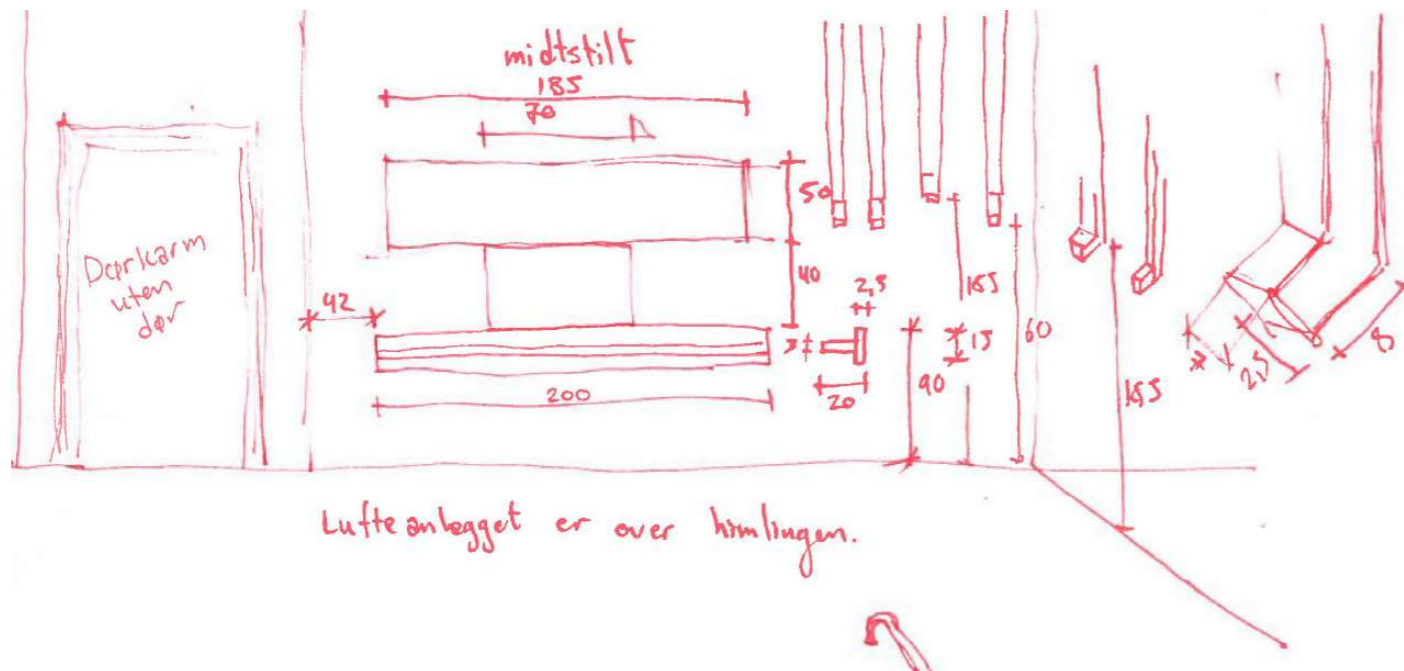 midtstilt
185
70
50
40
Dørkarm
uten
dør
42
200
2,5
3
20
90
15
165
60
165
2,5
8
Lufteanlegget er over himlingen.